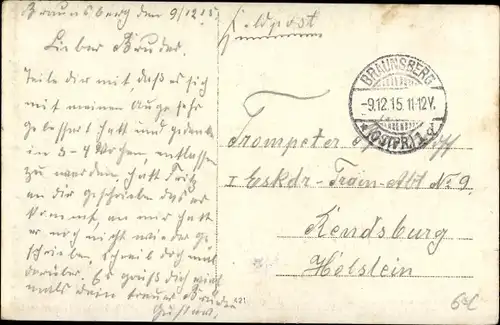 Braunsberg den 9/12 15.
Lieber Bruder.
Teile dir mit, daß es sich
mit meinen Auge sehr
gebessert hatt und gedenke
in 3-4 Wochen, entlassen
zu werden, hatt Fritz
an dir geschrieben das er
kommt, an mir hatt
er noch nicht wieder ge-
schrieben, schreib doch mal
darüber. Es grüßt dich viel-
mals dein treuer Bruder
Gustav.
Feldpost
BRAUNSBERG
-9.12.15.11-12V.
(OSTPR.) 1
Trompeter
I Eskdr-Train-Abt No 9.
Rendsburg
Holstein
421